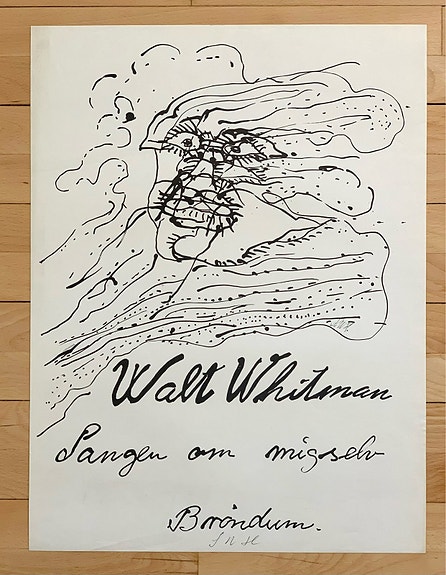 Walt Whitman
Sangen om migselv
Bröndum.